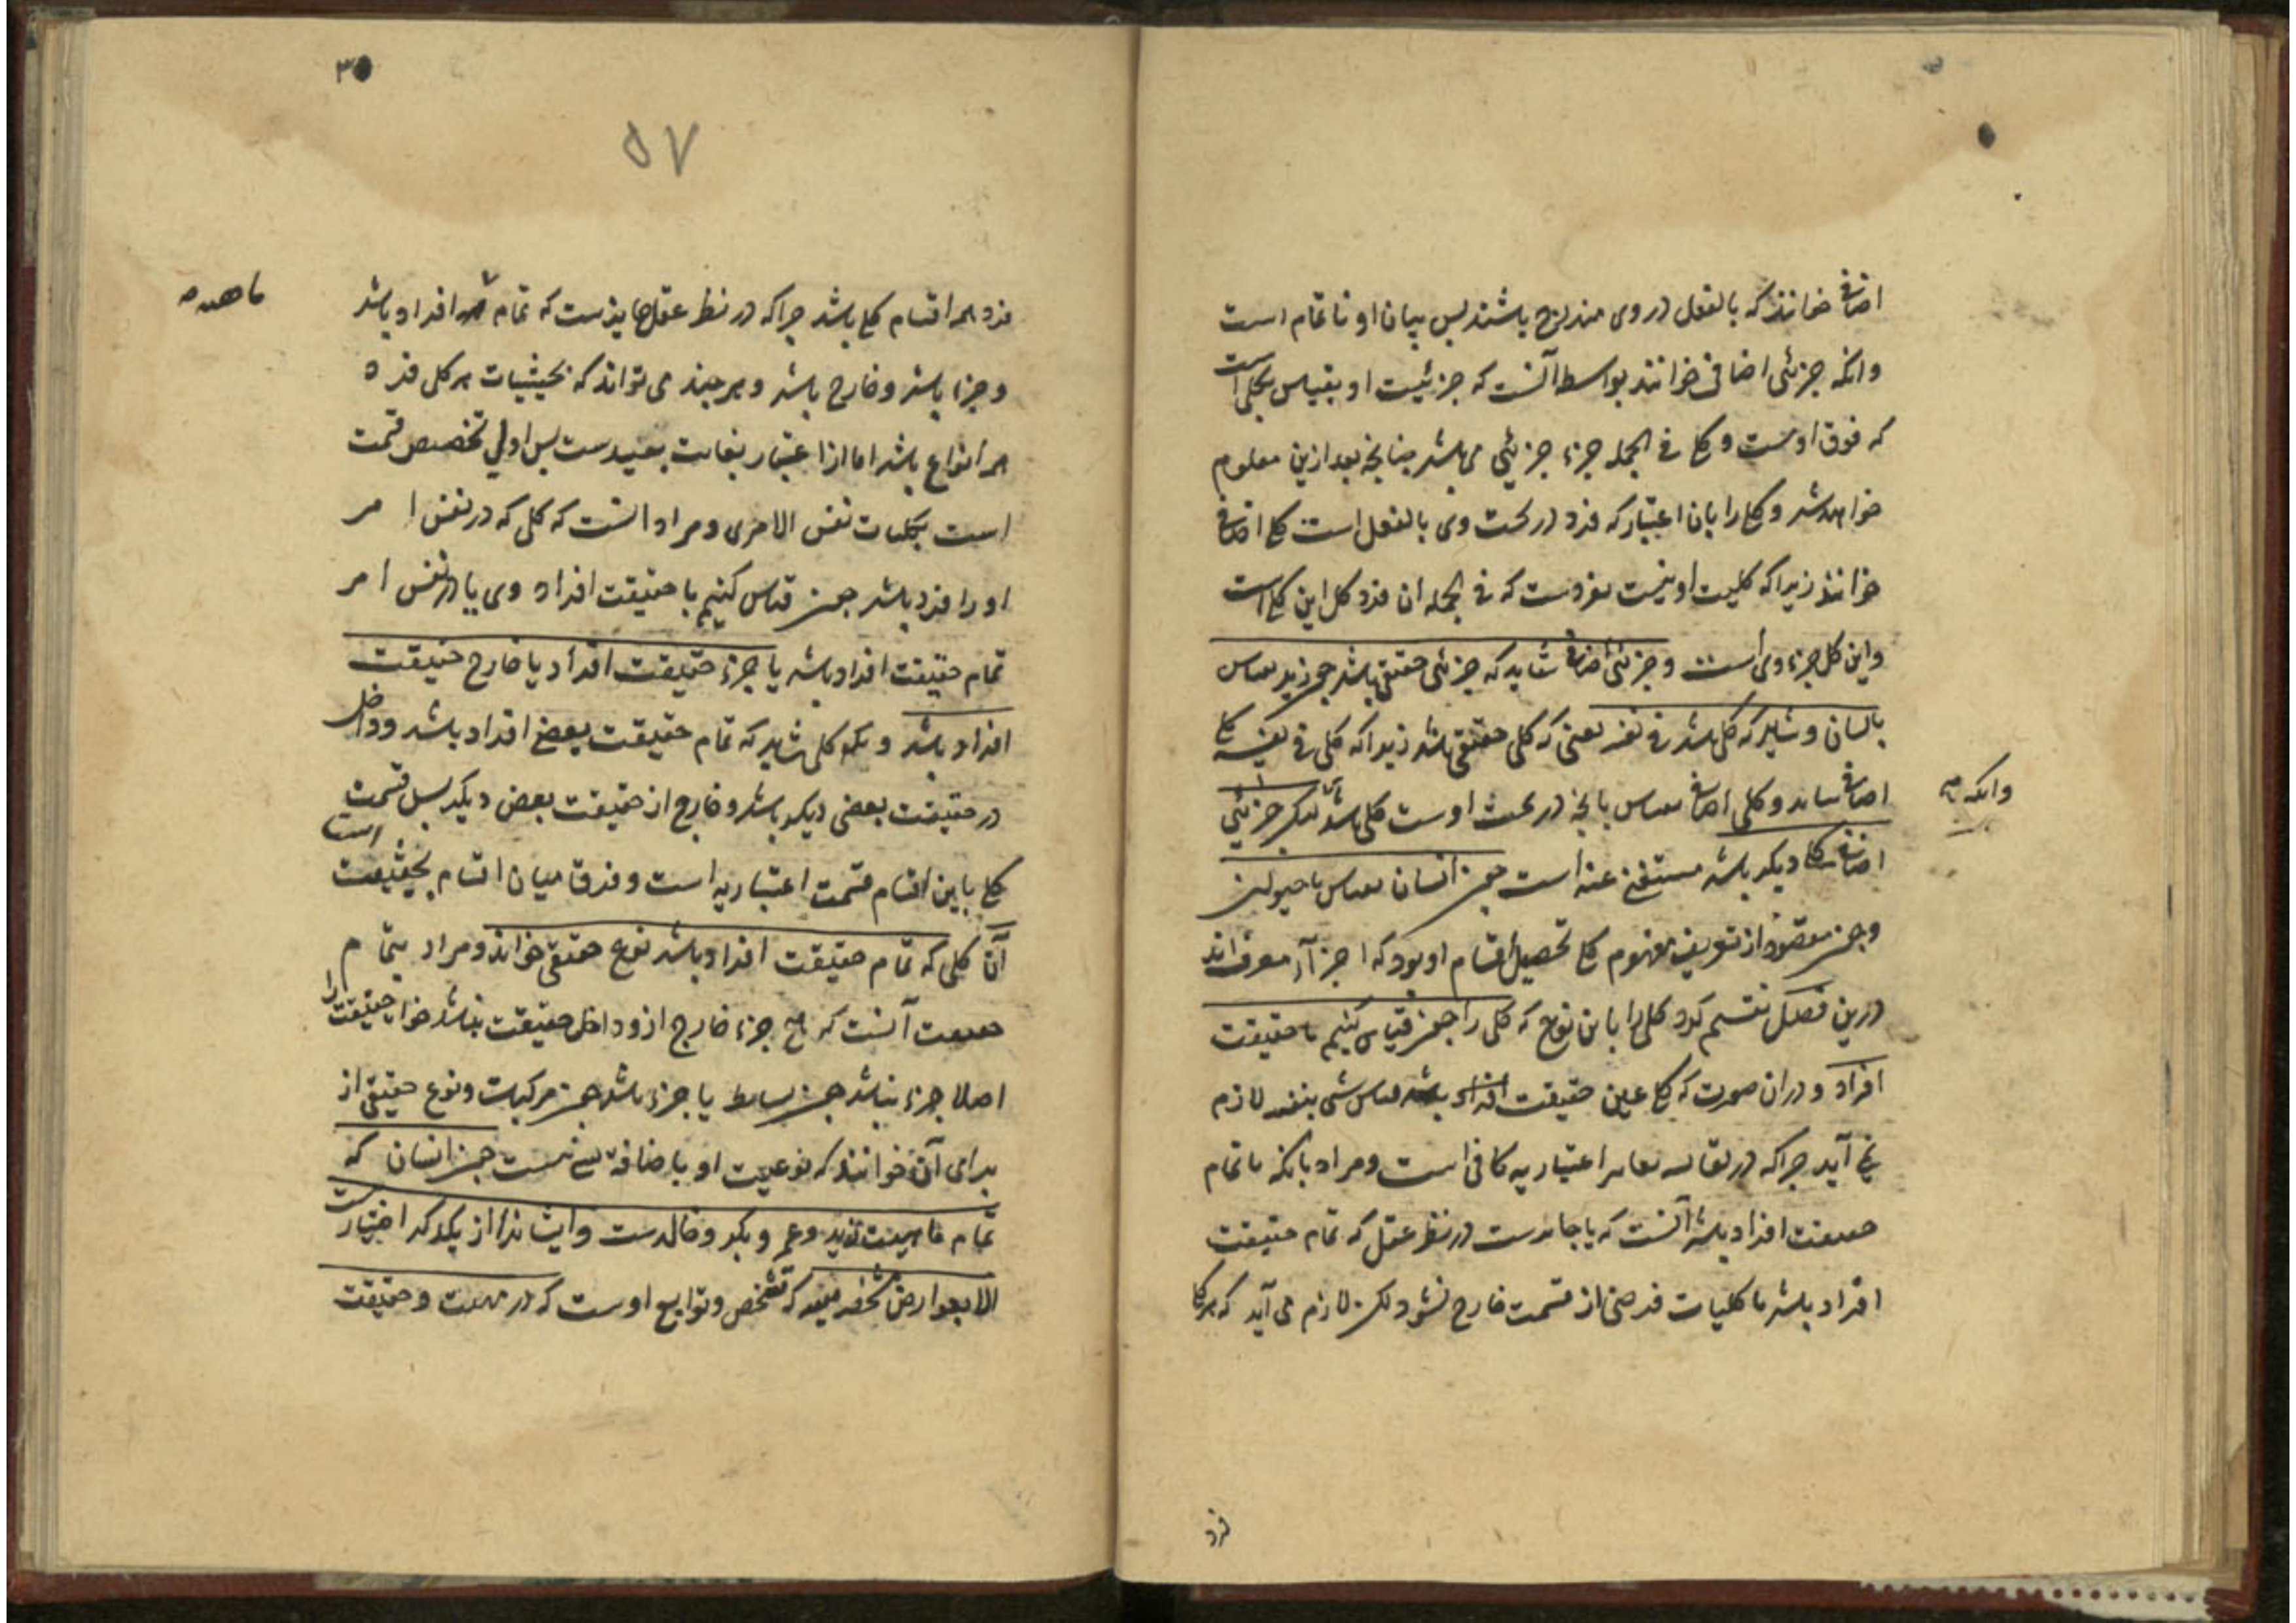 اضافی خوانند که بالفعل در وی مندرج باشند پس بیان او ناتمام است
وانکه جزئی اضافی خوانند بواسطه آنست که جزئیت او بقیاس بکلی است
که فوق اوست و کلی فی الجمله جزء جزئی می باشد چنانچه بعد ازین معلوم
خواهد شد و کلی را بان اعتبار که فرد در تحت وی بالفعل است کلی اضافی
خوانند زیرا که کلیت او بنسبت بفردست که فی الجمله ان فرد کل این کلی است
واین کل جزء وی است و جزئی اضافی شاید که جزئی حقیقی باشد چون زید بقیاس
بانسان و شاید که کلی باشد فی نفسه یعنی که کلی حقیقی باشد زیرا که کلی فی نفسه کلی
اضافی وکلی اضافی بقیاس بانچه در تحت اوست کلی باشد لیکن جزئی
وانکه
اضافی کلی دیکر باشد مستغنی عنه است چون انسان بقیاس با حیوان
وچون مقصود از تعریف مفهوم کلی تحصیل اقسام او بود که اجزآء معرف اند
درین فصل تقسیم کرد کلی را باین نوع که کلی را چون قیاس کنیم با حقیقت
افراد و دران صورت که کلی عین حقیقت افراد باشد قیاس شی بنفسه لازم
نمی آید چرا که در تقابل تغایر اعتباریه کافی است و مراد بانکه ما تمام
حقیقت افراد باشد آنست که یا جایزست در نظر عقل که تمام حقیقت
افراد باشد تا کلیات فرضی از قسمت خارج نشود لکن لازم می آید که هر کلی
فرد
۳۵
۵۷
فرد همه اقسام کلی باشد چرا که در نظر عقل جایزست که تمام افراد باشد
وجزء باشد وخارج باشد و هر چند می تواند که بحیثیات هر کلی فرد
همه انواع باشد اما از اعتبار بغایت بعیدست پس اولی تخصیص قسمت
است بکلیات نفس الامری ومراد انست که کلی که در نفس امر
او را فرد باشد چون قیاس کنیم با حقیقت افراد وی یا در نفس امر
تمام حقیقت افراد باشد یا جزء حقیقت افراد یا خارج حقیقت
افراد باشد و یک کلی شاید که تمام حقیقت بعضی افراد باشد وداخل
در حقیقت بعضی دیکر باشد وخارج از حقیقت بعض دیکر پس قسمت
کلی باین اقسام قسمت اعتباریه است وفرق میان اقسام بحیثیت است
آن کلی که تمام حقیقت افراد باشد نوع حقیقی خوانند ومراد بتمام
حقیقت آنست که هیچ جزء خارج ازو داخل حقیقت نباشد خواه حقیقت را
اصلا جزء نباشد چون بسایط یا جزء باشد چون مرکبات ونوع حقیقی از
برای آن خوانند که نوعیت او باضافه شی نیست چون انسان که
تمام ماهیت زید وعمرو وبکر وخالدست وایشانرا از یکدیکر امتیازست
الا بعوارض مشخصه که تشخص وتوابع اوست که در ماهیت وحقیقت